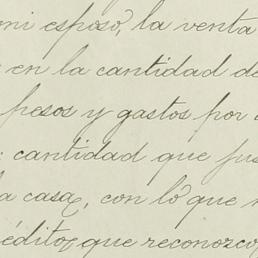 mi esposo, la venta
en la cantidad de
pesos y gastos por
cantidad que
la casa, con lo que
réditos que reconozco